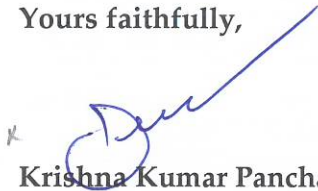 Yours faithfully,
Krishna Kumar